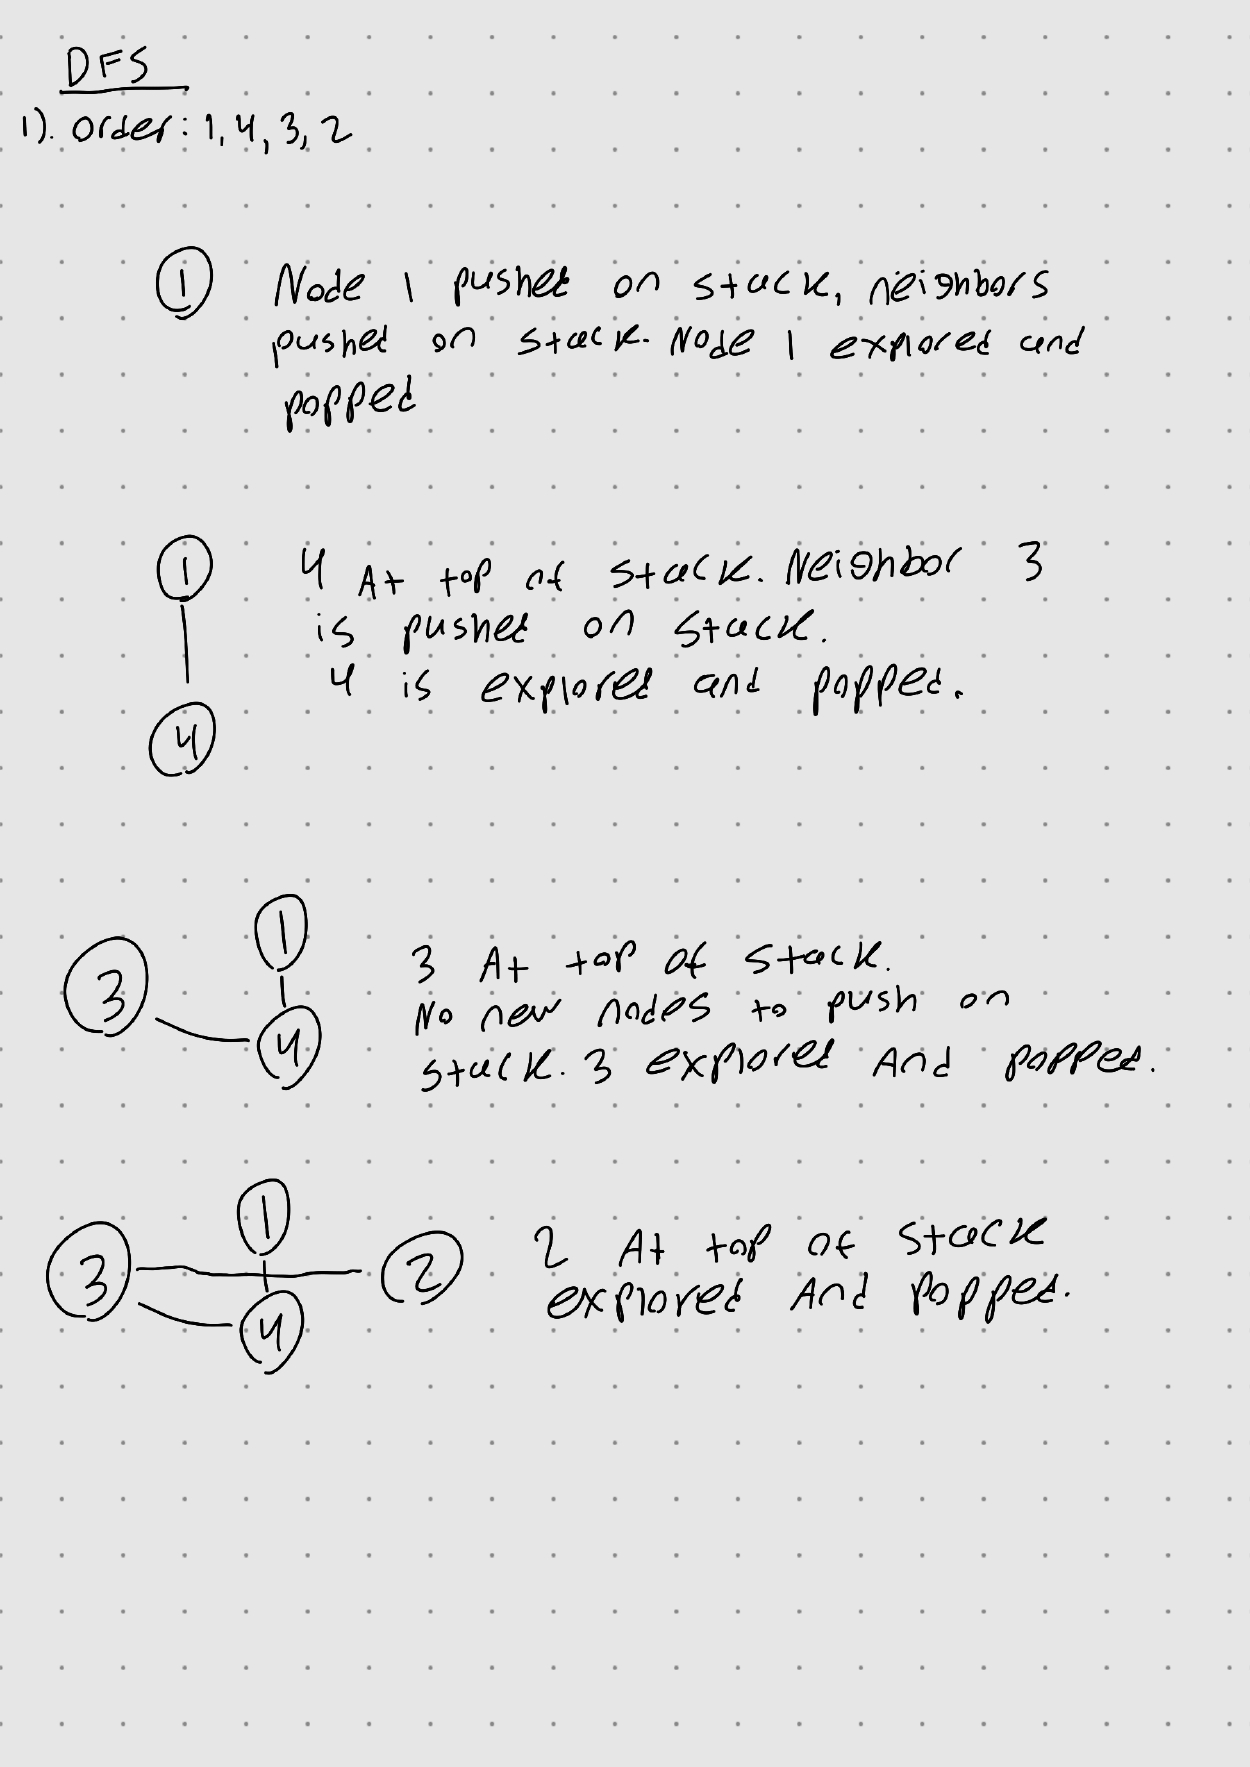 DFS
1). order: 1, 4, 3, 2
1
Node 1 pushed on stack, neighbors
pushed on stack. Node 1 explored and
popped
1
4 At top of stack. Neighbor 3
is pushed on stack.
4 is explored and popped.
4
1
3
4
3 At top of stack.
No new nodes to push on
stack. 3 explored And popped.
1
3
2
4
2 At top of stack
explored And popped.